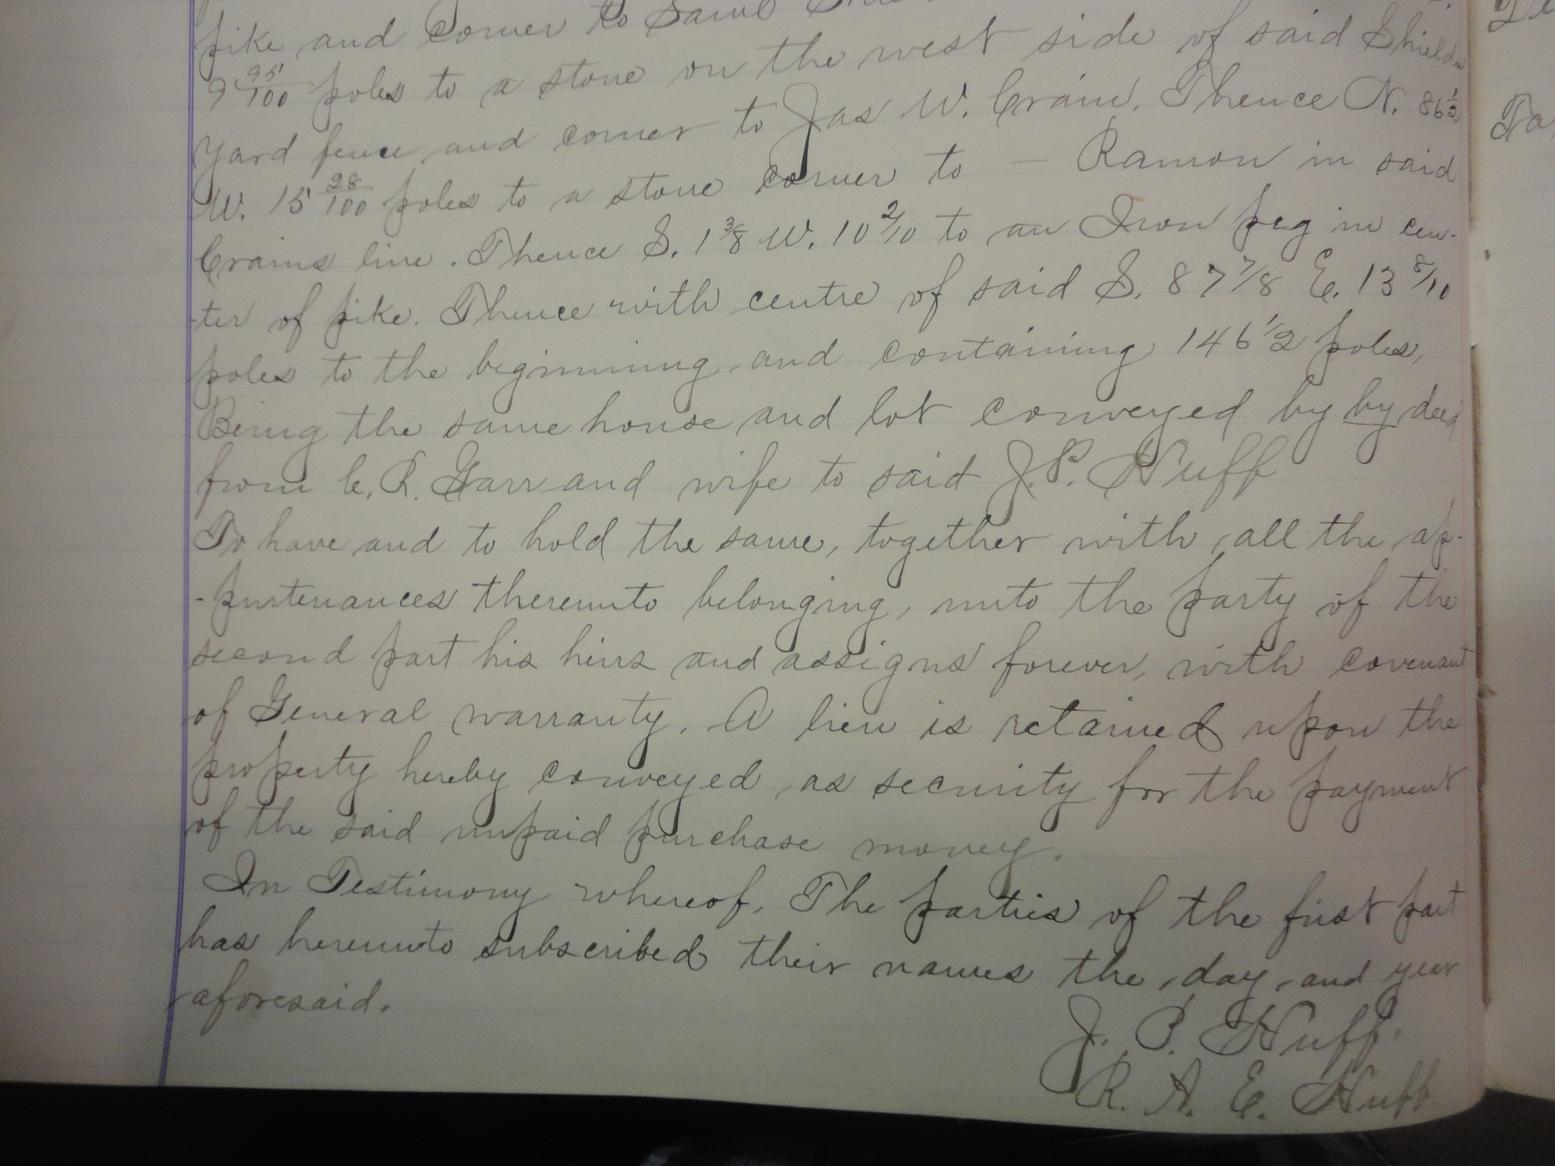 pike and corner to Saml
9 95/100 poles to a stone on the west side of said Shields
yard fence, and corner to Jas W. Crain. Thence N. 86 1/2
W. 15 28/100 poles to a stone corner to — Ramon in said
Crains line. Thence S. 1 3/8 W. 10 2/10 to an Iron peg in cen-
-ter of pike. Thence with centre of said S. 87 7/8 E. 13 8/10
poles to the beginning, and containing 146 1/2 poles,
Being the same house and lot conveyed by by deed
from C. R. Garr and wife to said J. P. Huff
To have and to hold the same, together with, all the ap-
-purtenances thereunto belonging, unto the party of the
second part his heirs and assigns forever, with covenant
of General warranty. A lien is retained upon the
property hereby conveyed, as security for the payment
of the said unpaid purchase money.
In Testimony whereof, The parties of the first part
has hereunto subscribed their names the, day, and year
aforesaid.
J. P. Huff.
R. A. E. Huff.